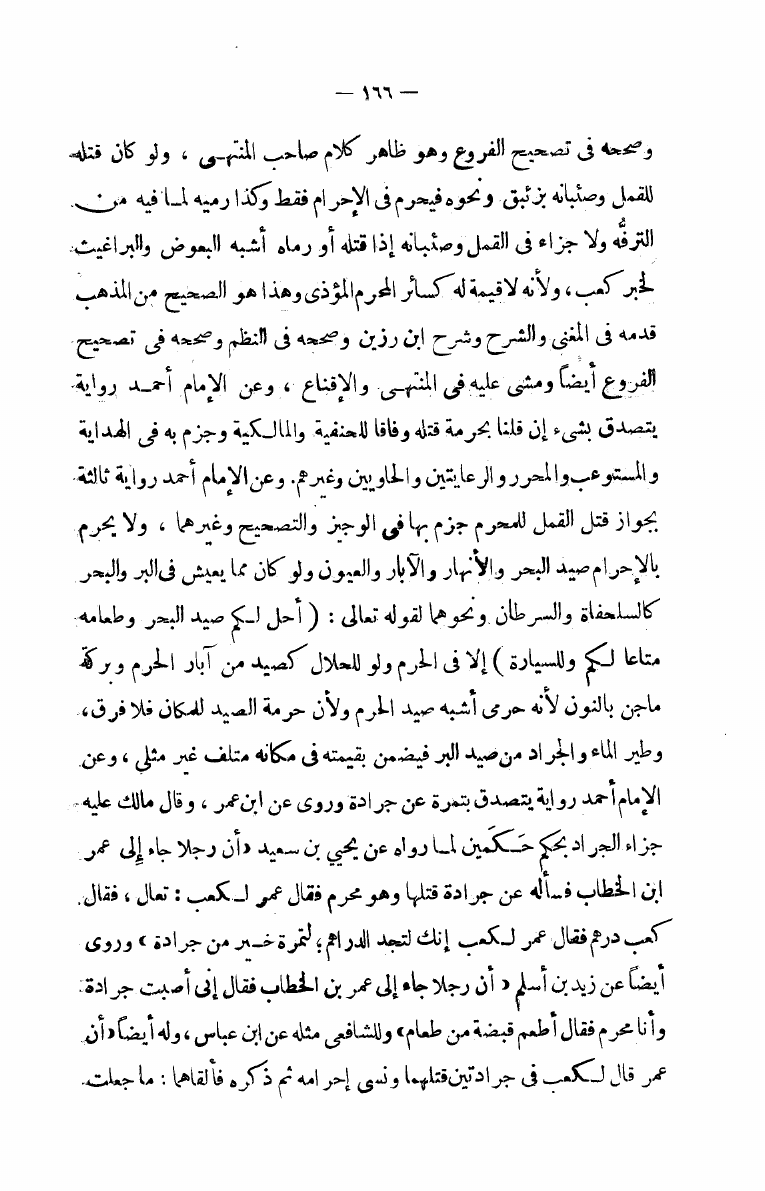 — ١٦٦ —
وصححه فى تصحيح الفروع وهو ظاهر كلام صاحب المنتهى ، ولو كان قتله
للقمل وصئبانه بزئبق ونحوه فيحرم فى الإحرام فقط وكذا رميه لما فيه من
الترفُّه ولا جزاء فى القمل وصئبانه إذا قتله أو رماه أشبه البعوض والبراغيث
لخبر كعب، ولأنه لاقيمة له كسائر المحرم المؤذى وهذا هو الصحيح من المذهب
قدمه فى المغنى والشرح وشرح ابن رزين وصححه فى النظم وصححه فى تصحيح
الفروع أيضاً ومشى عليه فى المنتهى والإقناع ، وعن الإمام أحمد رواية
يتصدق بشىء إن قلنا بحرمة قتله وفاقا للحنفية والمالكية وجزم به فى الهداية
والمستوعب والمحرر والرعايتين والحاويين وغيرهم. وعن الإمام أحمد رواية ثالثة
بجواز قتل القمل للمحرم جزم بها فى الوجيز والتصحيح وغيرهما ، ولا يحرم
بالإحرام صيد البحر والأنهار والآبار والعيون ولو كان مما يعيش فى البر والبحر
كالسلحفاة والسرطان ونحوهما لقوله تعالى : ( أحل لكم صيد البحر وطعامه
متاعا لكم وللسيارة ) إلا فى الحرم ولو للحلال كصيد من آبار الحرم وبركة
ماجن بالنون لأنه حرمى أشبه صيد الحرم ولأن حرمة الصيد للمكان فلا فرق،
وطير الماء والجراد من صيد البر فيضمن بقيمته فى مكانه متلف غير مثلي ، وعن
الإمام أحمد رواية يتصدق بتمرة عن جرادة وروى عن ابن عمر ، وقال مالك عليه
جزاء الجراد بحكم حَكَمين لما رواه عن يحيي بن سعيد «أن رجلا جاء إلى عمر
ابن الخطاب فسأله عن جرادة قتلها وهو محرم فقال عمر لكعب : تعال ، فقال
كعب درهم فقال عمر لكعب إنك لتجد الدراهم؛ لتمرة خير من جرادة » وروى
أيضاً عن زيد بن أسلم « أن رجلا جاء إلى عمر بن الخطاب فقال إنى أصبت جرادة
وأنا محرم فقال أطعم قبضة من طعام» وللشافعى مثله عن ابن عباس ، وله أيضاً «أن
عمر قال لكعب فى جرادتين قتلهما ونسى إحرامه ثم ذكره فألقاهما : ما جعلت